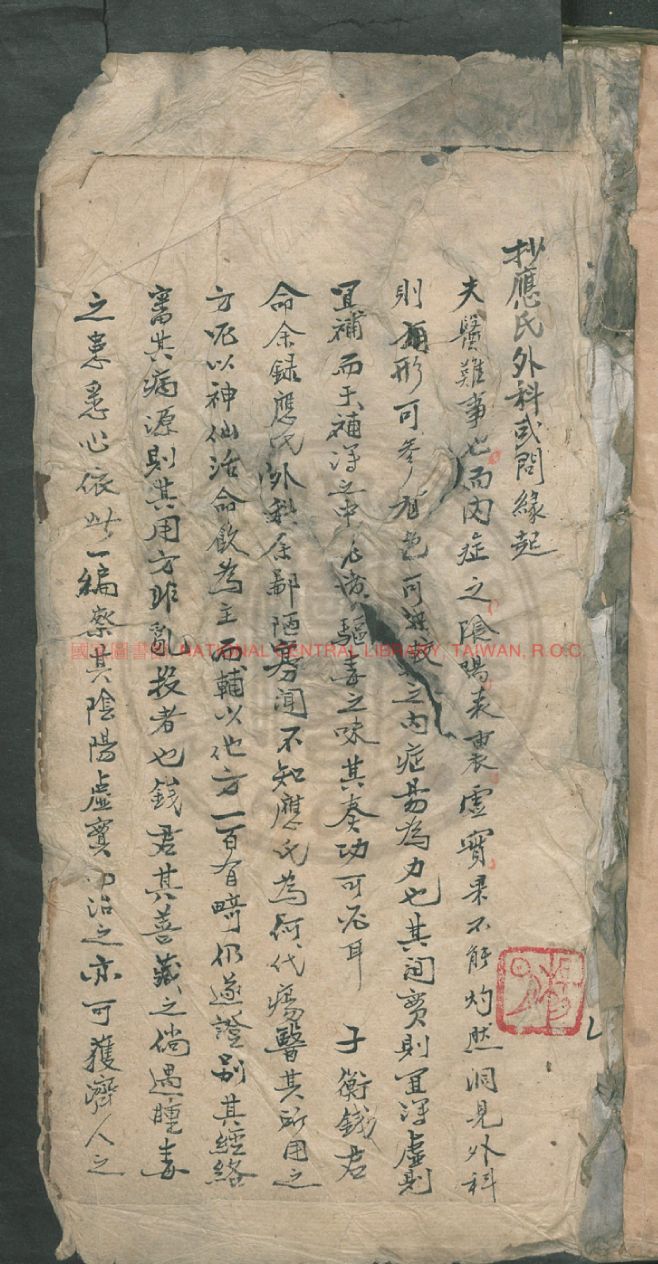 抄應氏外科或問緣起
夫醫難事也而內症之陰陽表裏虛實果不能灼然洞見外科
則有形可參有色可
之內症易為力也其間實則宜瀉虛則
宜補而于補瀉之中
驅毒之味其奏功可必耳 子衡錢君
命余錄應氏外科余鄙陋寡聞不知應氏為何代瘍醫其所用之
方咒以神仙活命飲為主而輔以他方一百有畸仍逐證別其經絡
審其病源則其用方非亂投者也錢君其善藏之倘遇腫毒
之患悉心依此一編察其陰陽虛實
治之亦可獲濟人之
國
圖書
NATIONAL CENTRAL LIBRARY, TAIWAN, R.O.C.